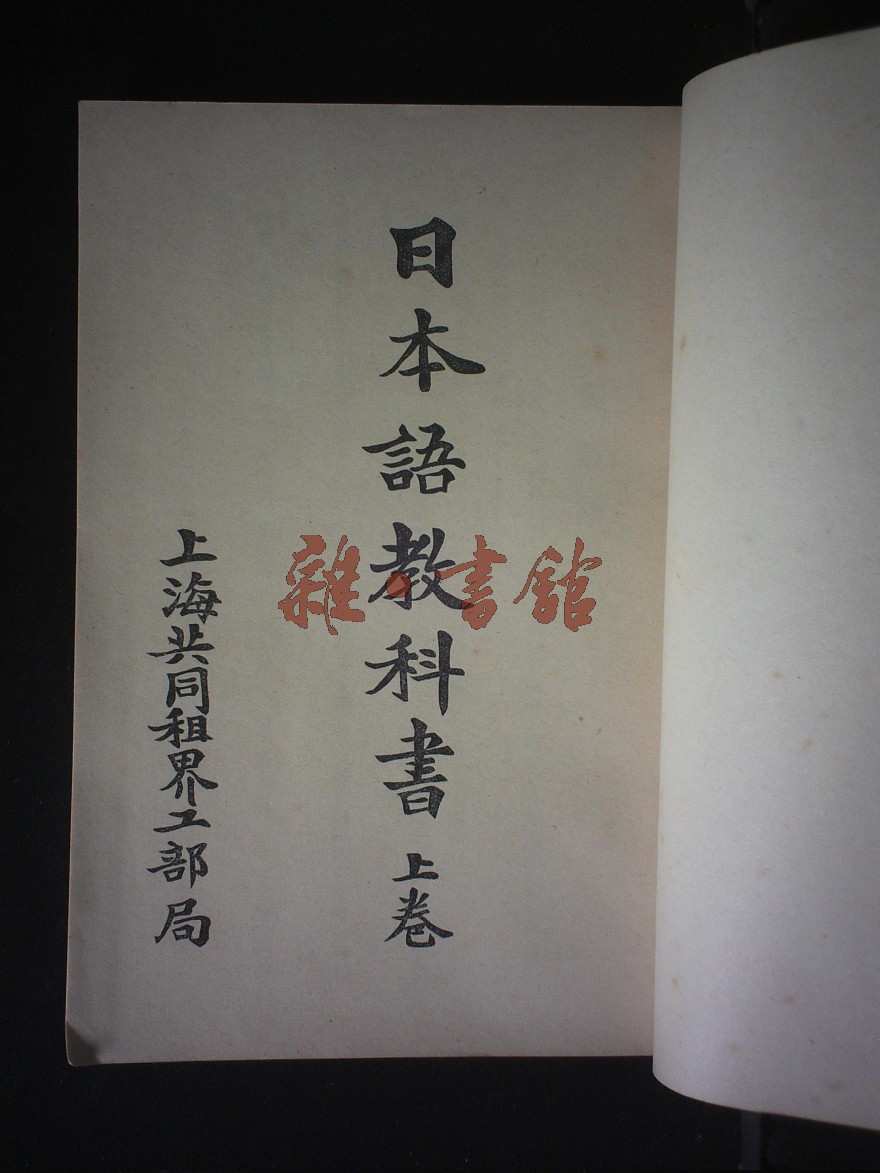 日本語教科書 上卷
上海共同租界工部局
雜·書館